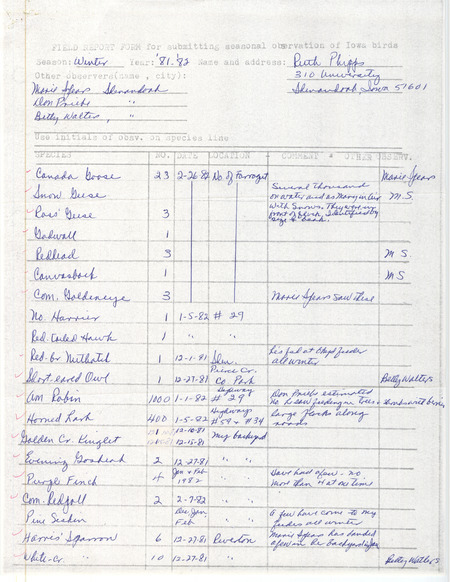 FIELD REPORT FORM for submitting seasonal observation of Iowa birds
Season: Winter Year: '81-'82 Name and address: Ruth Phipps
Other observers(name, city): 310 University
Marie Spears Shenandoah Shenandoah, Iowa 51601
Don Priebe "
Betty Walter, "
Use initials of obsv. on species line
SPECIES NO. DATE LOCATION COMMENT & OTHER OBSERV.
Canada Goose 23 2-26-82 No. of Farragut Marie Spears
Snow Geese Several thousand on water and as many in air M.S.
Ross' Geese 3 With Snows. They were in front of flock. Identified by size & beak.
Gadwall 1
Redhead 3 M S.
Canvasback 1 M S
Com. Goldeneye 3 Marie Spears saw these
No. Harrier 1 1-5-82 # 29
Red-tailed Hawk 1 " "
Red-br Nuthatch 1 12-1-81 Shen. all winter
Short-eared Owl 1 12-27-81 Pierce Cr. Co Park Betty Walters
Am Robin 1000 1-1-82 Highway # 29 Don Priebe estimated
Horned Lark 400 1-5-82 Highways #59 & #34 Large flocks along roads
Golden Cr. Kinglet 1 12-10-81 12-15-81 My backyard
Evening Grosbeak 2 12-27-81 " "
Purple Finch 4 Jan & Feb 1982 " " Have had a few - 20 more than 4 at one time
Com. Redpoll 2 2-7-82 " "
Pine Siskin Dec. Jan Feb " " A few have come to my feeders all winter
Harris' Sparrow 6 12-27-81 Riverton Marie Spears has banded a few in her backyard
White-Cr. " 10 12-27-81 " " Betty Walters